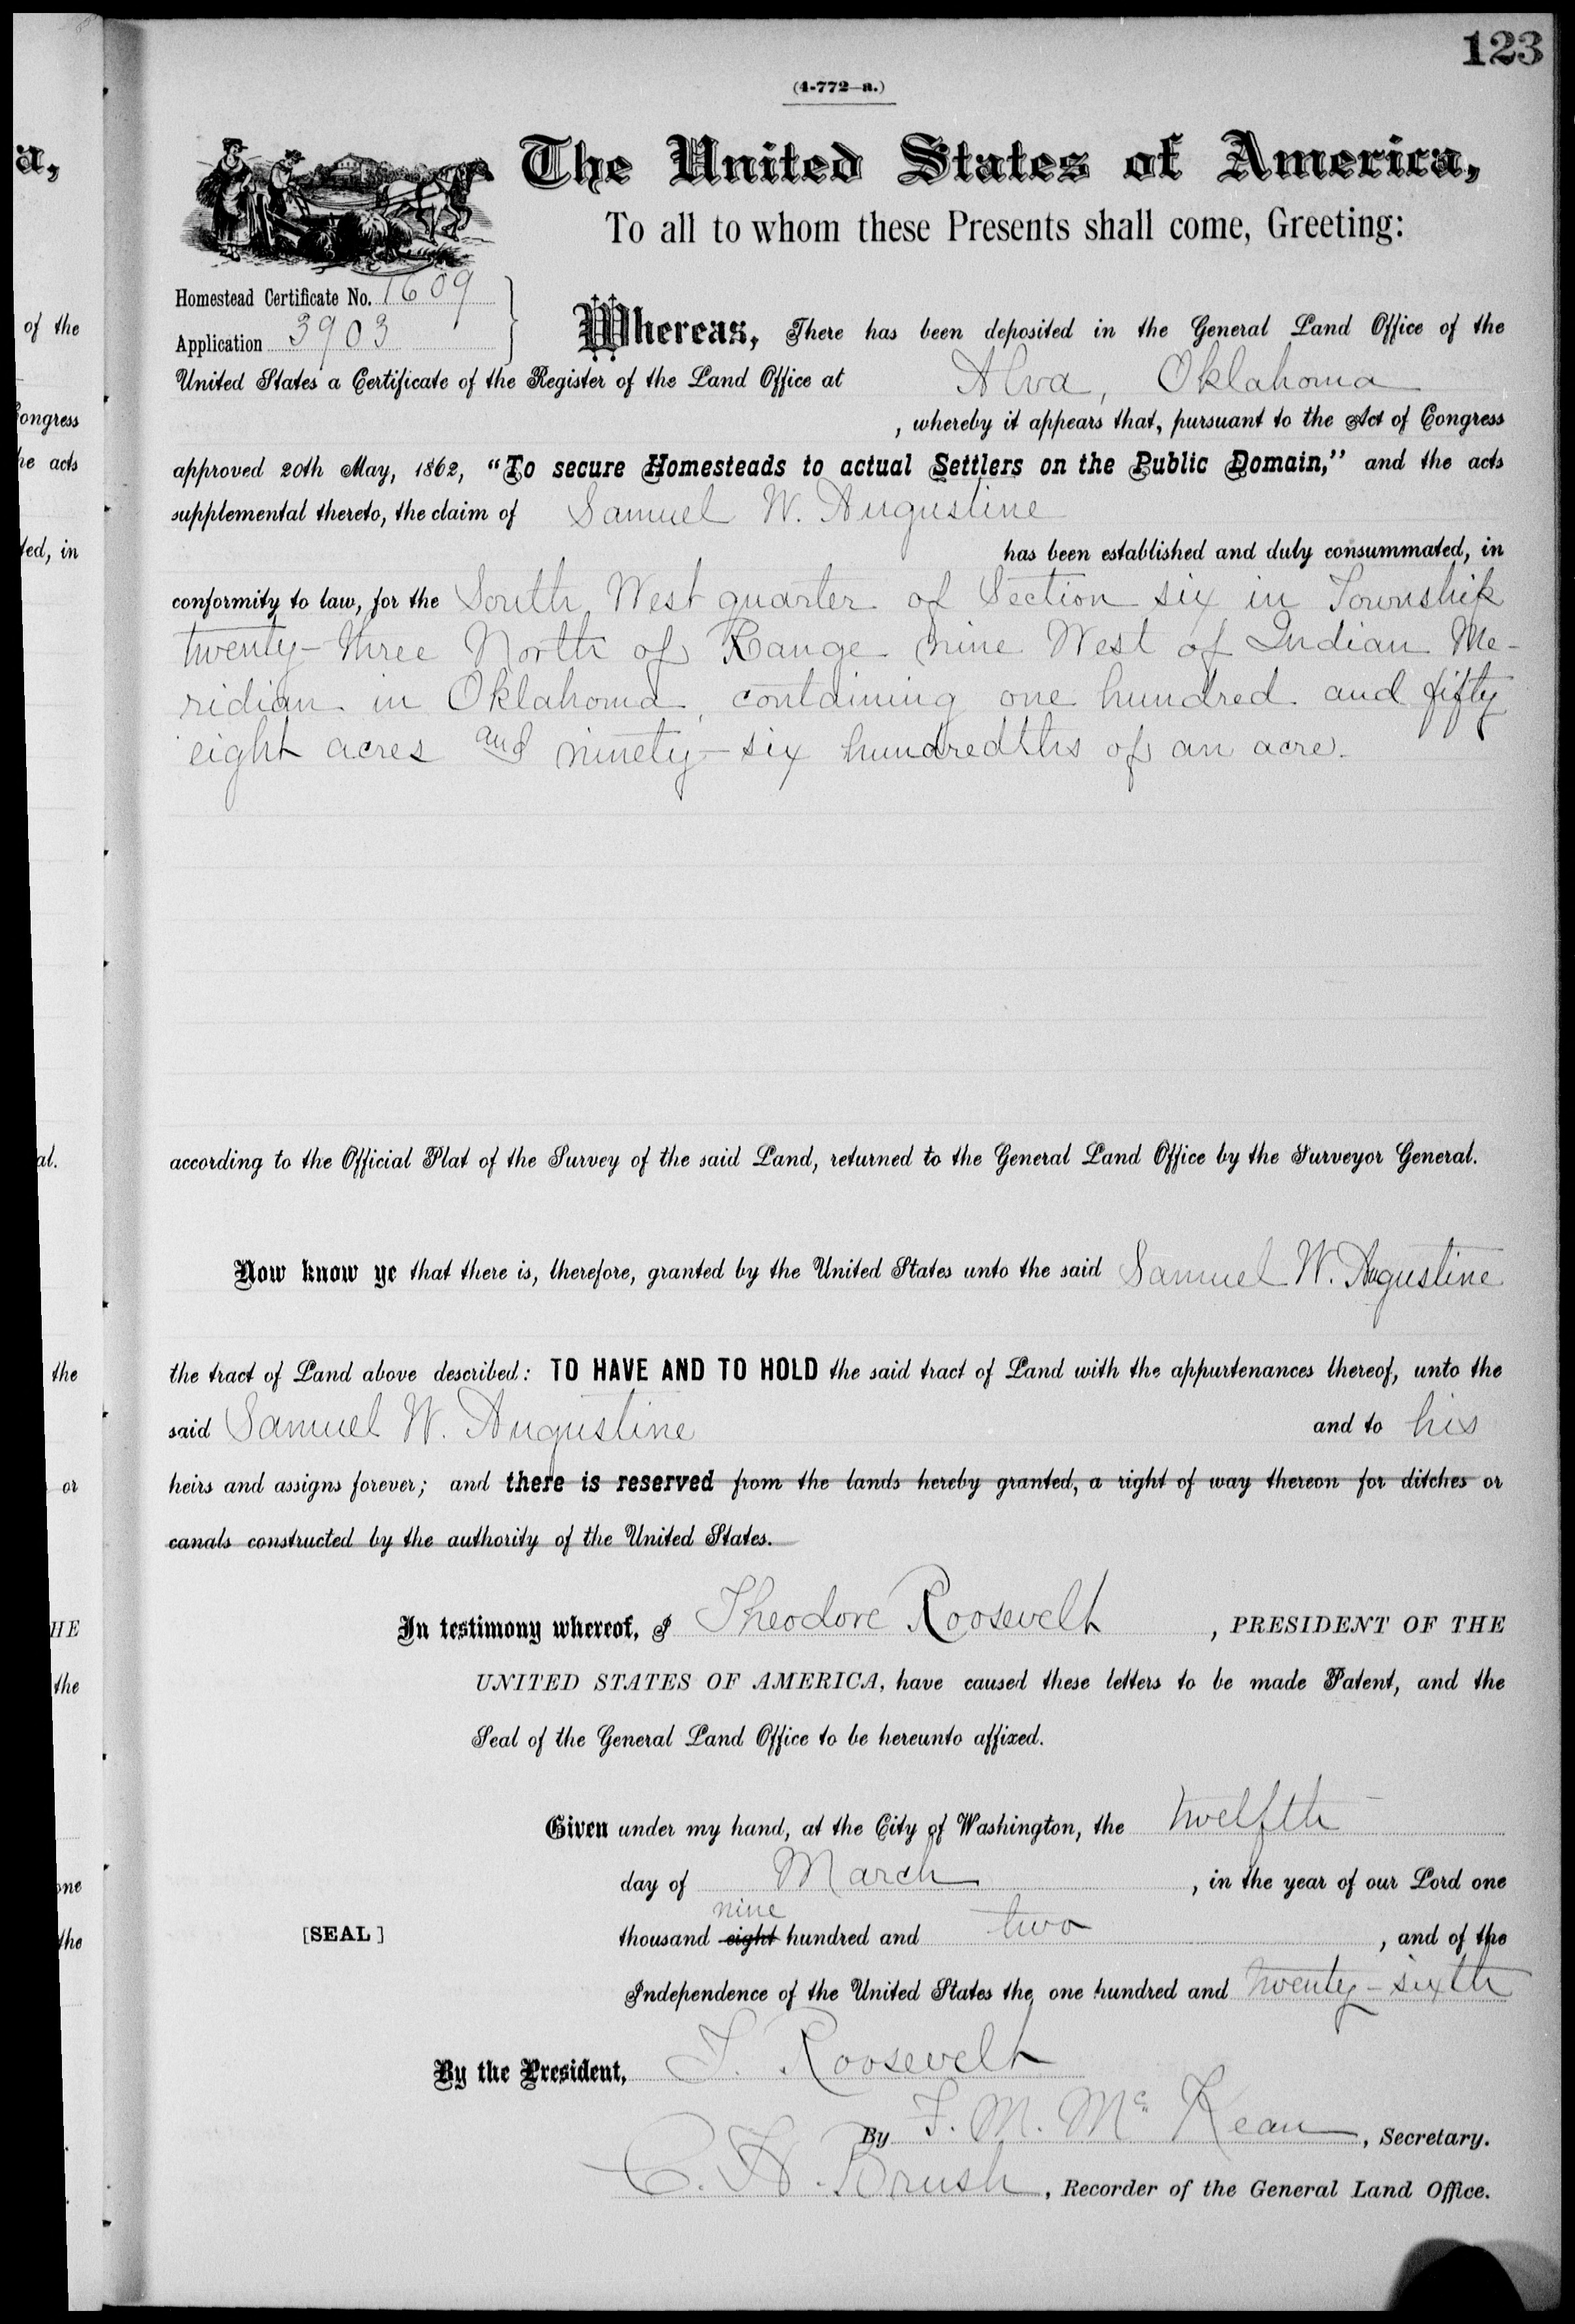 123
(4-772-a.)
The United States of America,
To all to whom these Presents shall come, Greeting:
Homestead Certificate No. 1609
Application 3903
Whereas, There has been deposited in the General Land Office of the
United States a Certificate of the Register of the Land Office at Alva, Oklahoma
, whereby it appears that, pursuant to the Act of Congress
approved 20th May, 1862, "To secure Homesteads to actual Settlers on the Public Domain," and the acts
supplemental thereto, the claim of Samuel W. Augustine
has been established and duly consummated, in
conformity to law, for the South West quarter of Section six in Township
twenty-three North of Range nine West of Indian Me-
ridian in Oklahoma, containing one hundred and fifty
eight acres and ninety-six hundredths of an acre.
according to the Official Plat of the Survey of the said Land, returned to the General Land Office by the Surveyor General.
Now know ye that there is, therefore, granted by the United States unto the said Samuel W. Augustine
the tract of Land above described: TO HAVE AND TO HOLD the said tract of Land with the appurtenances thereof, unto the
said Samuel W. Augustine and to his
heirs and assigns forever; and there is reserved from the lands hereby granted, a right of way thereon for ditches or
canals constructed by the authority of the United States.
In testimony whereof, I Theodore Roosevelt, PRESIDENT OF THE
UNITED STATES OF AMERICA, have caused these letters to be made Patent, and the
Seal of the General Land Office to be hereunto affixed.
Given under my hand, at the City of Washington, the twelfth
day of March, in the year of our Lord one
nine
[SEAL] thousand eight hundred and two, and of the
Independence of the United States the one hundred and twenty-sixth
By the President, T. Roosevelt
By F. M. McKean, Secretary.
C. H. Brush, Recorder of the General Land Office.
a,
of the
ongress
he acts
ted, in
al.
the
or
HE
the
one
the